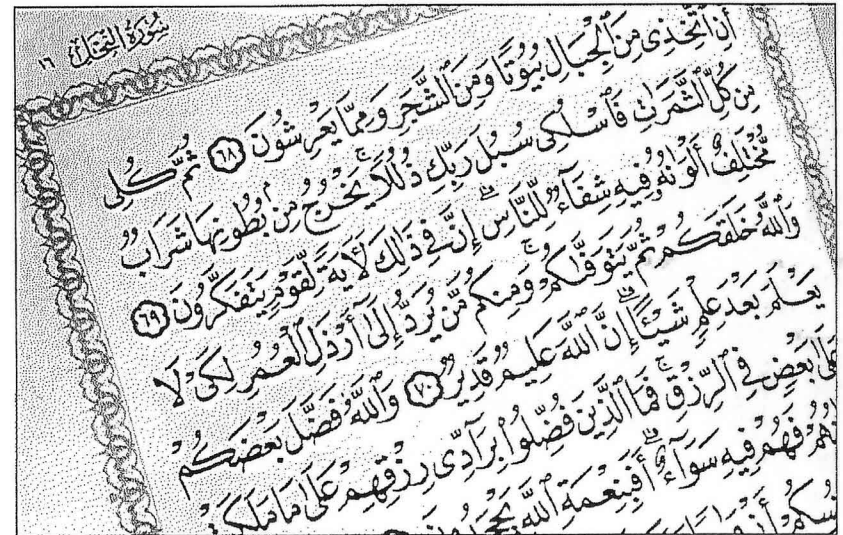 سُورَةُ النَّحْلِ ١٦
أَنِ ٱتَّخِذِى مِنَ ٱلْجِبَالِ بُيُوتًا وَمِنَ ٱلشَّجَرِ وَمِمَّا يَعْرِشُونَ ٦٨ ثُمَّ كُلِى
مِن كُلِّ ٱلثَّمَرَٰتِ فَٱسْلُكِى سُبُلَ رَبِّكِ ذُلُلًا ۚ يَخْرُجُ مِنۢ بُطُونِهَا شَرَابٌ
مُّخْتَلِفٌ أَلْوَٰنُهُۥ فِيهِ شِفَآءٌ لِّلنَّاسِ ۗ إِنَّ فِى ذَٰلِكَ لَـَٔايَةً لِّقَوْمٍ يَتَفَكَّرُونَ ٦٩
وَٱللَّهُ خَلَقَكُمْ ثُمَّ يَتَوَفَّىٰكُمْ ۚ وَمِنكُم مَّن يُرَدُّ إِلَىٰٓ أَرْذَلِ ٱلْعُمُرِ لِكَىْ لَا
يَعْلَمَ بَعْدَ عِلْمٍ شَيْـًٔا ۚ إِنَّ ٱللَّهَ عَلِيمٌ قَدِيرٌ ٧٠ وَٱللَّهُ فَضَّلَ بَعْضَكُمْ
عَلَىٰ بَعْضٍ فِى ٱلرِّزْقِ ۚ فَمَا ٱلَّذِينَ فُضِّلُوا۟ بِرَآدِّى رِزْقِهِمْ عَلَىٰ مَا مَلَكَتْ
فَهُمْ فِيهِ سَوَآءٌ ۚ أَفَبِنِعْمَةِ ٱللَّهِ يَجْحَدُونَ